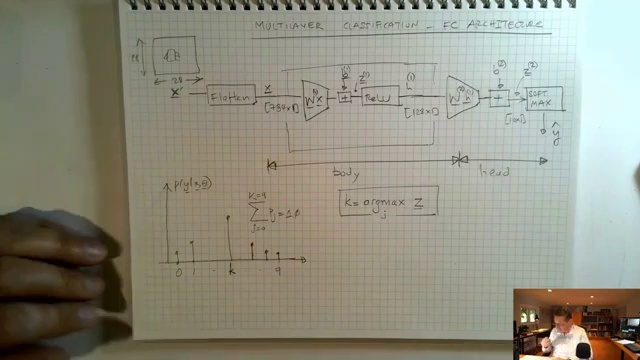 MULTILAYER CLASSIFICATION - FC ARCHITECTURE
28
28
X
Flatten
x
[784x1]
W⁽¹⁾x
b⁽¹⁾
+
z⁽¹⁾
ReLU
h⁽¹⁾
[128x1]
W⁽²⁾h⁽¹⁾
b⁽²⁾
+
z⁽²⁾
SOFT
MAX
ŷ
body
head
p(y|x,θ)
K=9
Σ Pj = 1.0
j=0
k = argmax z
j
0 1 k 9